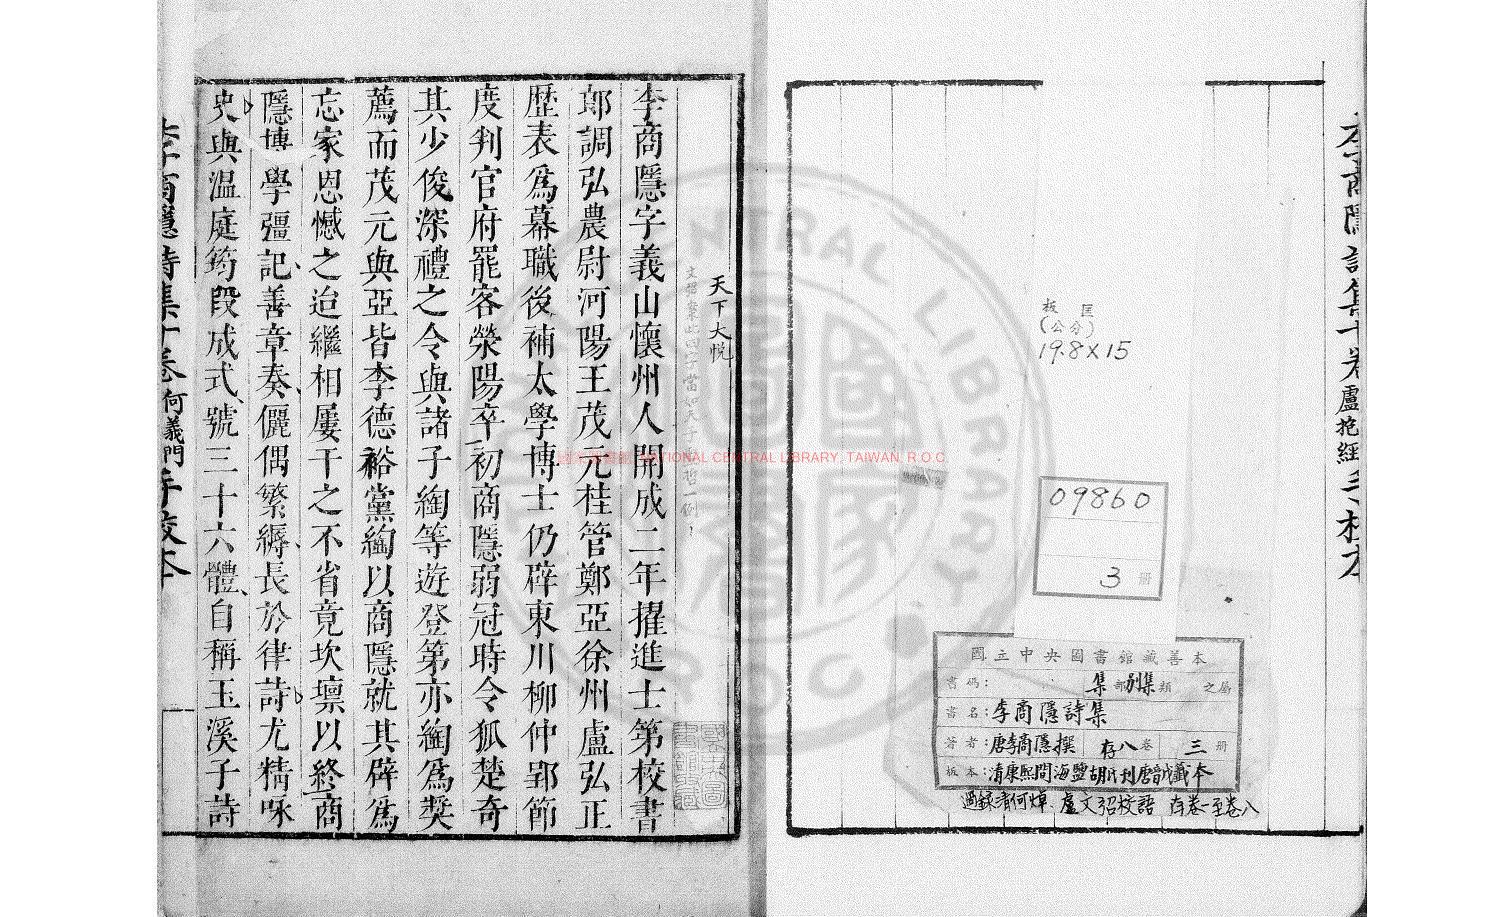 李商隱詩集十卷盧抱經手校本
板匡
(公分)
19.8×15
09860
3冊
國立中央圖書館藏善本
書碼：集部別集類之屬
書名：李商隱詩集
著者：唐李商隱撰 存八卷 三冊
板本：清康熙間海鹽胡氏刊唐音戊籤本
過錄清何焯、盧文弨校語 存卷一至卷八
天下大悅
李商隱字義山懷州人開成二年擢進士第校書
郎調弘農尉河陽王茂元桂管鄭亞徐州盧弘正
歷表爲幕職後補太學博士仍辟東川柳仲郢節
度判官府罷客滎陽卒初商隱弱冠時令狐楚奇
其少俊深禮之令與諸子綯等遊登第亦綯爲奨
薦而茂元與亞皆李德裕黨綯以商隱就其辟爲
忘家恩憾之迨繼相屢干之不省竟坎壈以終商
隱博學彊記善章奏儷偶繁縟長於律詩尤精咏
史與溫庭筠段成式號三十六體自稱玉溪子詩
李商隱詩集十卷何義門手校本
國家圖書館 NATIONAL CENTRAL LIBRARY, TAIWAN, R.O.C